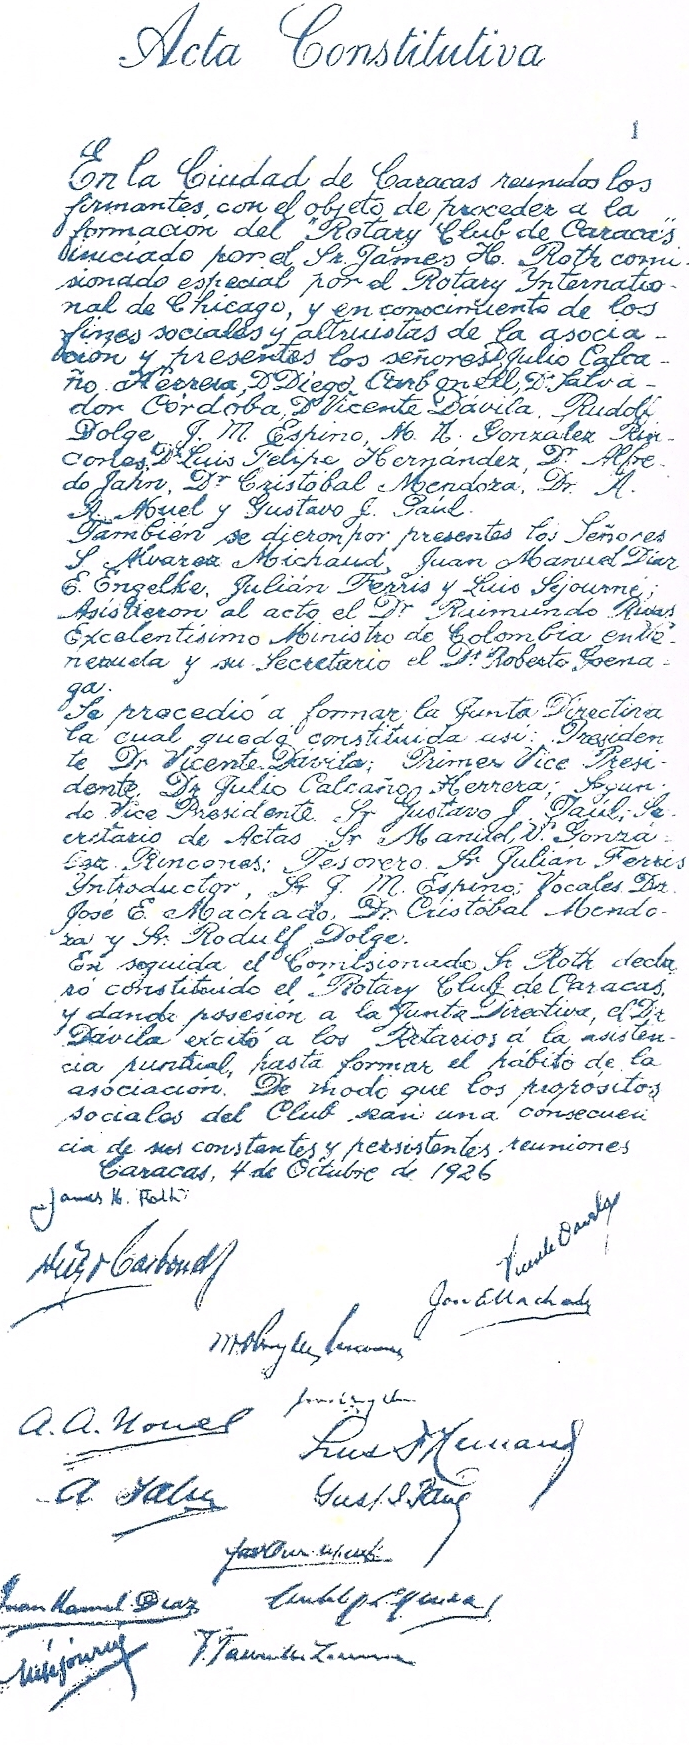 Acta Constitutiva
1
En la Ciudad de Caracas reunidos los
firmantes, con el objeto de proceder a la
formación del "Rotary Club de Caracas"
iniciado por el Sr. James H. Roth comi-
sionado especial por el Rotary Ynternatio-
nal de Chicago, y en conocimiento de los
fines sociales y altruistas de la asocia-
ción y presentes los señores Dr Julio Calca-
ño Herrera, Dr Diego Carbonell, Dr Salva-
dor Córdoba, Dr Vicente Dávila, Rudolf
Dolge, J. M. Espino, M. N. González Rin-
cones, Dr Luis Felipe Hernández, Dr. Alfre-
do Jahn, Dr Cristóbal Mendoza, Dr. A.
A. Nouel y Gustavo J. Paúl.
También se dieron por presentes los Señores
S. Alvarez Michaud, Juan Manuel Díaz
E. Engelke, Julián Ferris y Luis Sejourné;
Asistieron al acto el Dr Raimundo Rivas
Excelentísimo Ministro de Colombia en Ve-
nezuela y su Secretario el Dr Roberto Goena-
ga.
Se procedió a formar la Junta Directiva
la cual quedó constituida así: Presiden
te Dr Vicente Dávila; Primer Vice Presi-
dente Dr Julio Calcaño Herrera; Segun-
do Vice Presidente Sr Gustavo J. Paúl; Se-
cretario de Actas Sr Manuel N. Gonzá-
lez Rincones; Tesorero Sr Julian Ferris
Yntroductor, Sr J. M. Espino; Vocales Dr.
José E. Machado, Dr. Cristóbal Mendo-
za y Sr. Rodulf Dolge.
En seguida el Comisionado Sr Roth decla
ró constituido el "Rotary Club de Caracas,
y dando posesión a la Junta Directiva, el Dr
Dávila excitó a los Rotarios á la asisten-
cia puntual, hasta formar el hábito de la
asociación. De modo que los propósitos
sociales del Club sean una consecuen
cia de sus constantes y persistentes reuniones
Caracas, 4 de Octubre de 1926
James H. Roth
Diego Carbonell
Vicente Dávila
José E Machado
A. A. Nouel
Luis F Hernand
A. Jahn
Gust. J. Paúl
Juan Manuel Diaz
Luis Sejourné